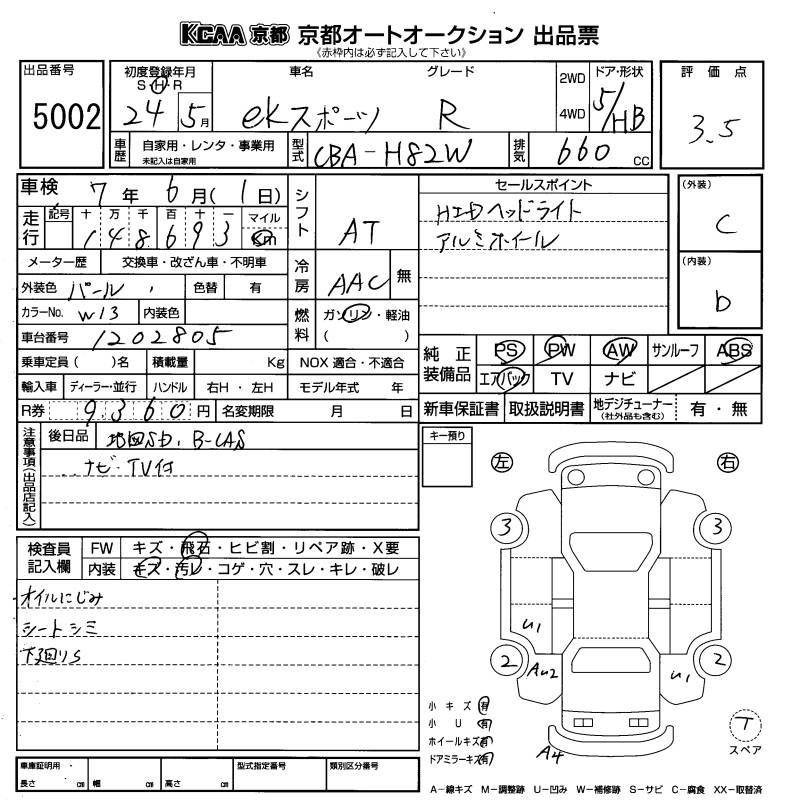 KCAA 京都 京都オートオークション 出品票
《赤枠内は必ず記入して下さい》
出品番号 初度登録年月 車名 グレード 2WD ドア・形状 評価点
S・H・R
5002 24 5月 eKスポーツ R 4WD 5/HB 3.5
車歴 自家用・レンタ・事業用 型式 CBA-H82W 排気 660 cc
未記入は自家用
車検 7年 6月( 1日) シフト AT セールスポイント (外装)
走行 記号 十 万 千 百 十 一 マイル HIDヘッドライト C
1 4 8 6 9 3 Km アルミホイール
メーター歴 交換車・改ざん車・不明車 冷房 AAC 無 (内装)
外装色 パール 色替 有 b
カラーNo. W13 内装色 燃料 ガソリン・軽油
( )
車台番号 1202805
純正装備品 PS PW AW サンルーフ ABS
乗車定員 ( )名 積載量 Kg NOX 適合・不適合
エアバック TV ナビ
輸入車 ディーラー・並行 ハンドル 右H・左H モデル年式 年
R券 9360円 名変期限 月 日 新車保証書 取扱説明書 地デジチューナー 有・無
(社外品も含む)
注意事項(出品店記入) 後日品 地図SD、B-CAS キー預り
ナビ・TV付
左 右
3 3
検査員記入欄 FW キズ・飛石・ヒビ割・リペア跡・X要
内装 キズ・汚レ・コゲ・穴・スレ・キレ・破レ
オイルにじみ
シートシミ
下廻りS
U1
2 AU2 U1 2
小キズ 有
小U 有
ホイールキズ 有
ドアミラーキズ 有
A4
T
スペア
車庫証明用 型式指定番号 類別区分番号
長さ cm 幅 cm 高さ cm
A-線キズ M-調整跡 U-凹み W-補修跡 S-サビ C-腐食 XX-取替済